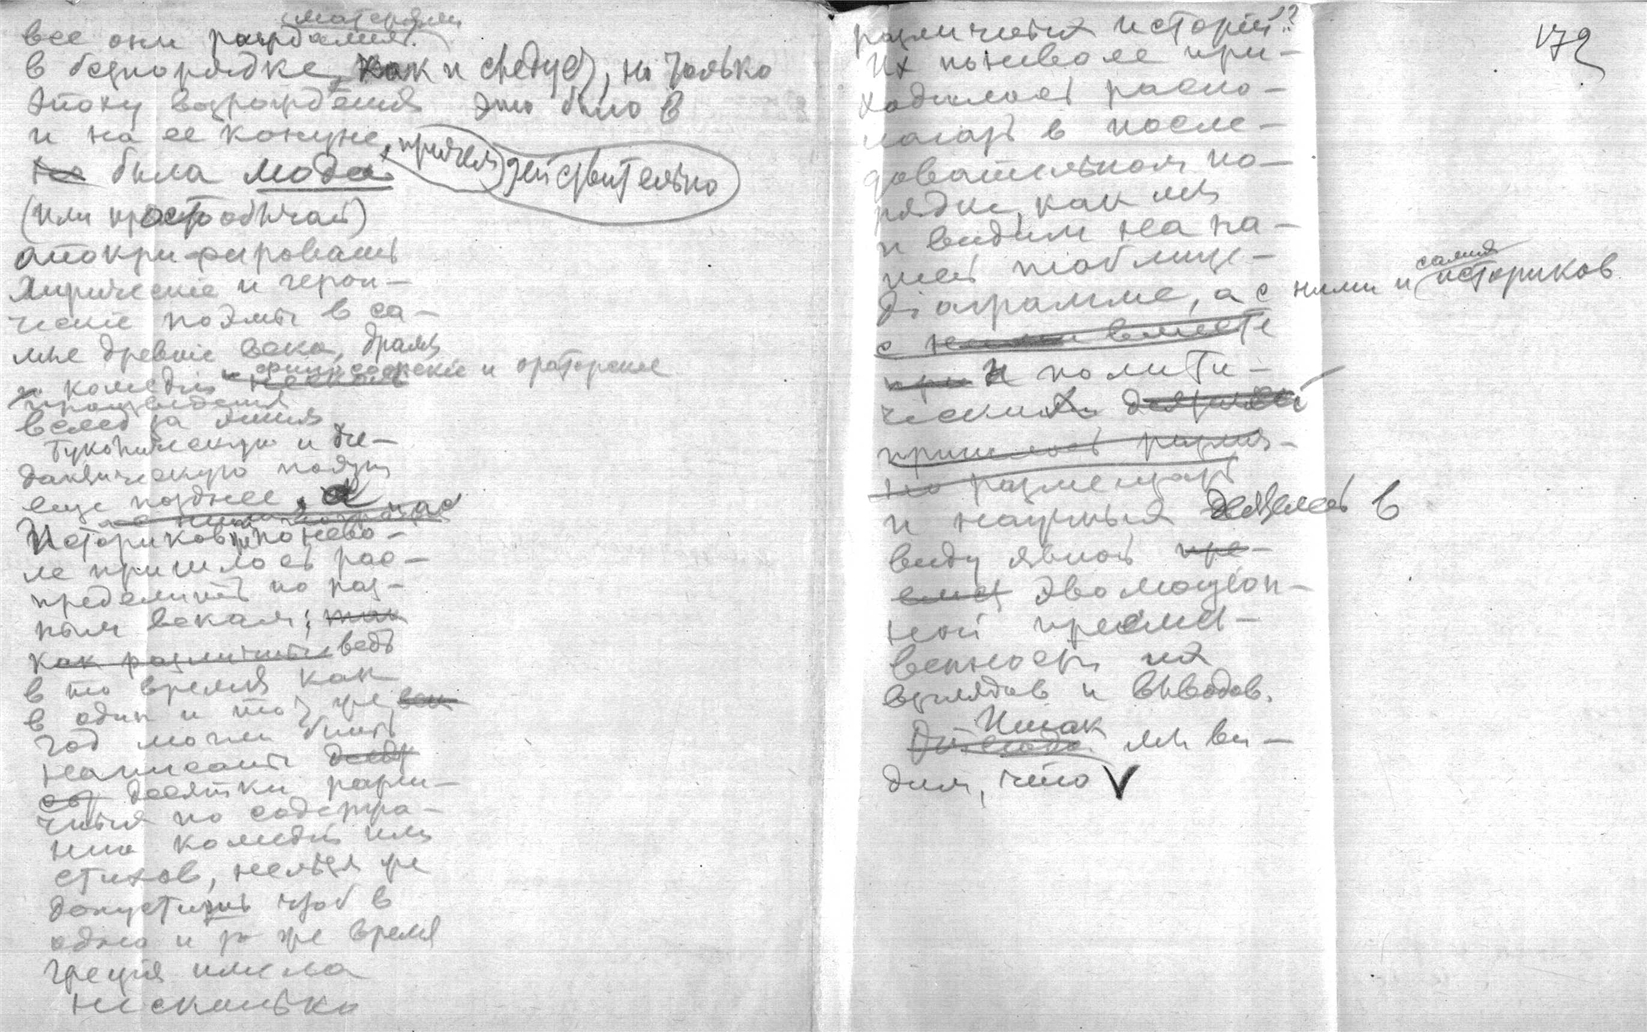 матерями
все они рождались
в беспорядке, как и следует, но только
Эпоху возрождения это было в
и на ее кануне,
причем действительно
не была мода
(или просто обычай)
апокрифировать
лирические и герои-
ческие поэмы в са-
мые древние века, драмы
и комедии и философские и ораторские
произведения
вслед за ними
буколическую и ди-
дактическую поэзию
еще позднее, а
Историков поневоле
ле пришлось рас-
пределить по раз-
ным векам; так
как различные ведь
в то время как
в один и тот же век
год могли быть
написаны
десятки разли-
чных по содержа-
нию комедий или
стихов, нельзя же
допустить чтоб в
одно и то же время
Греция имела
несколько
172
различных историй!?
Их поневоле при-
ходилось распо-
лагать в после-
довательном по-
рядке, как мы
и видим на на-
шей таблице-
діаграмме, а с ними и самих историков
с ними вместе
при И полити-
ческих деятелей
пришлось разме-
но размещать
и научных деятелей в
виду явной пре-
емст эволюціон-
ной преемст-
венности их
взглядов и выводов.
Итак мы ви-
дим, что V